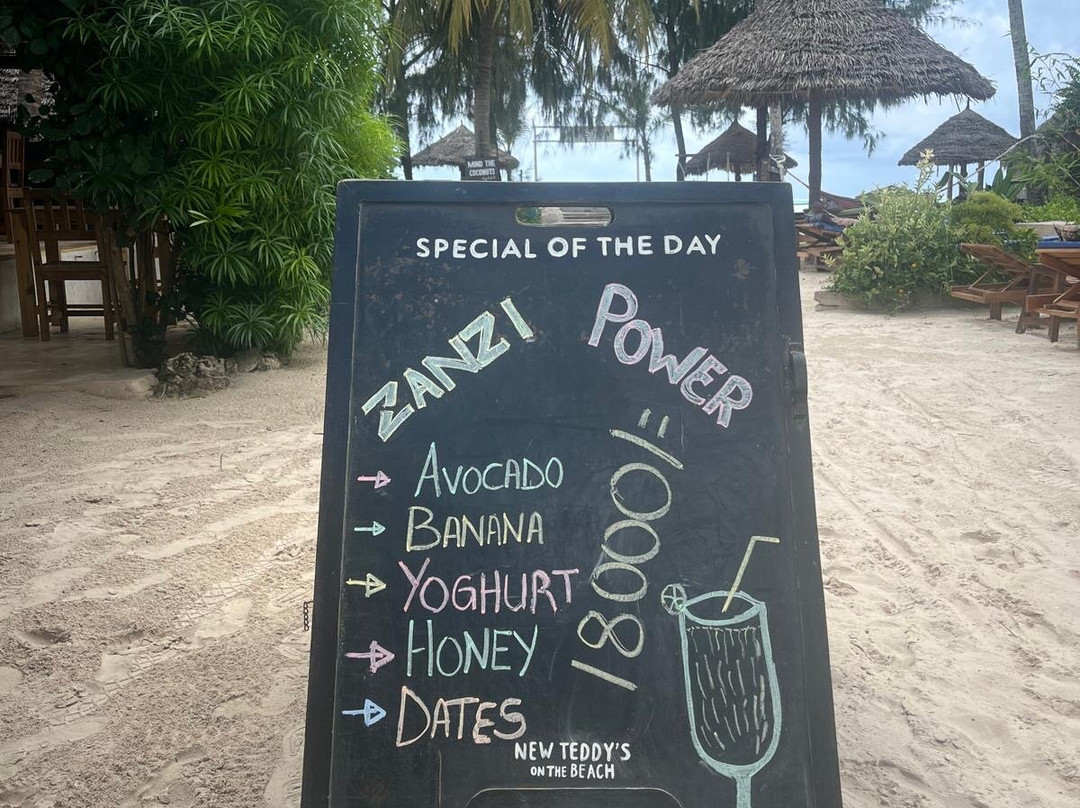 MIND THE
COCONUTS
SPECIAL OF THE DAY
ZANZI POWER
AVOCADO
BANANA
YOGHURT
HONEY
DATES
18000/=
NEW TEDDY'S
ON THE BEACH